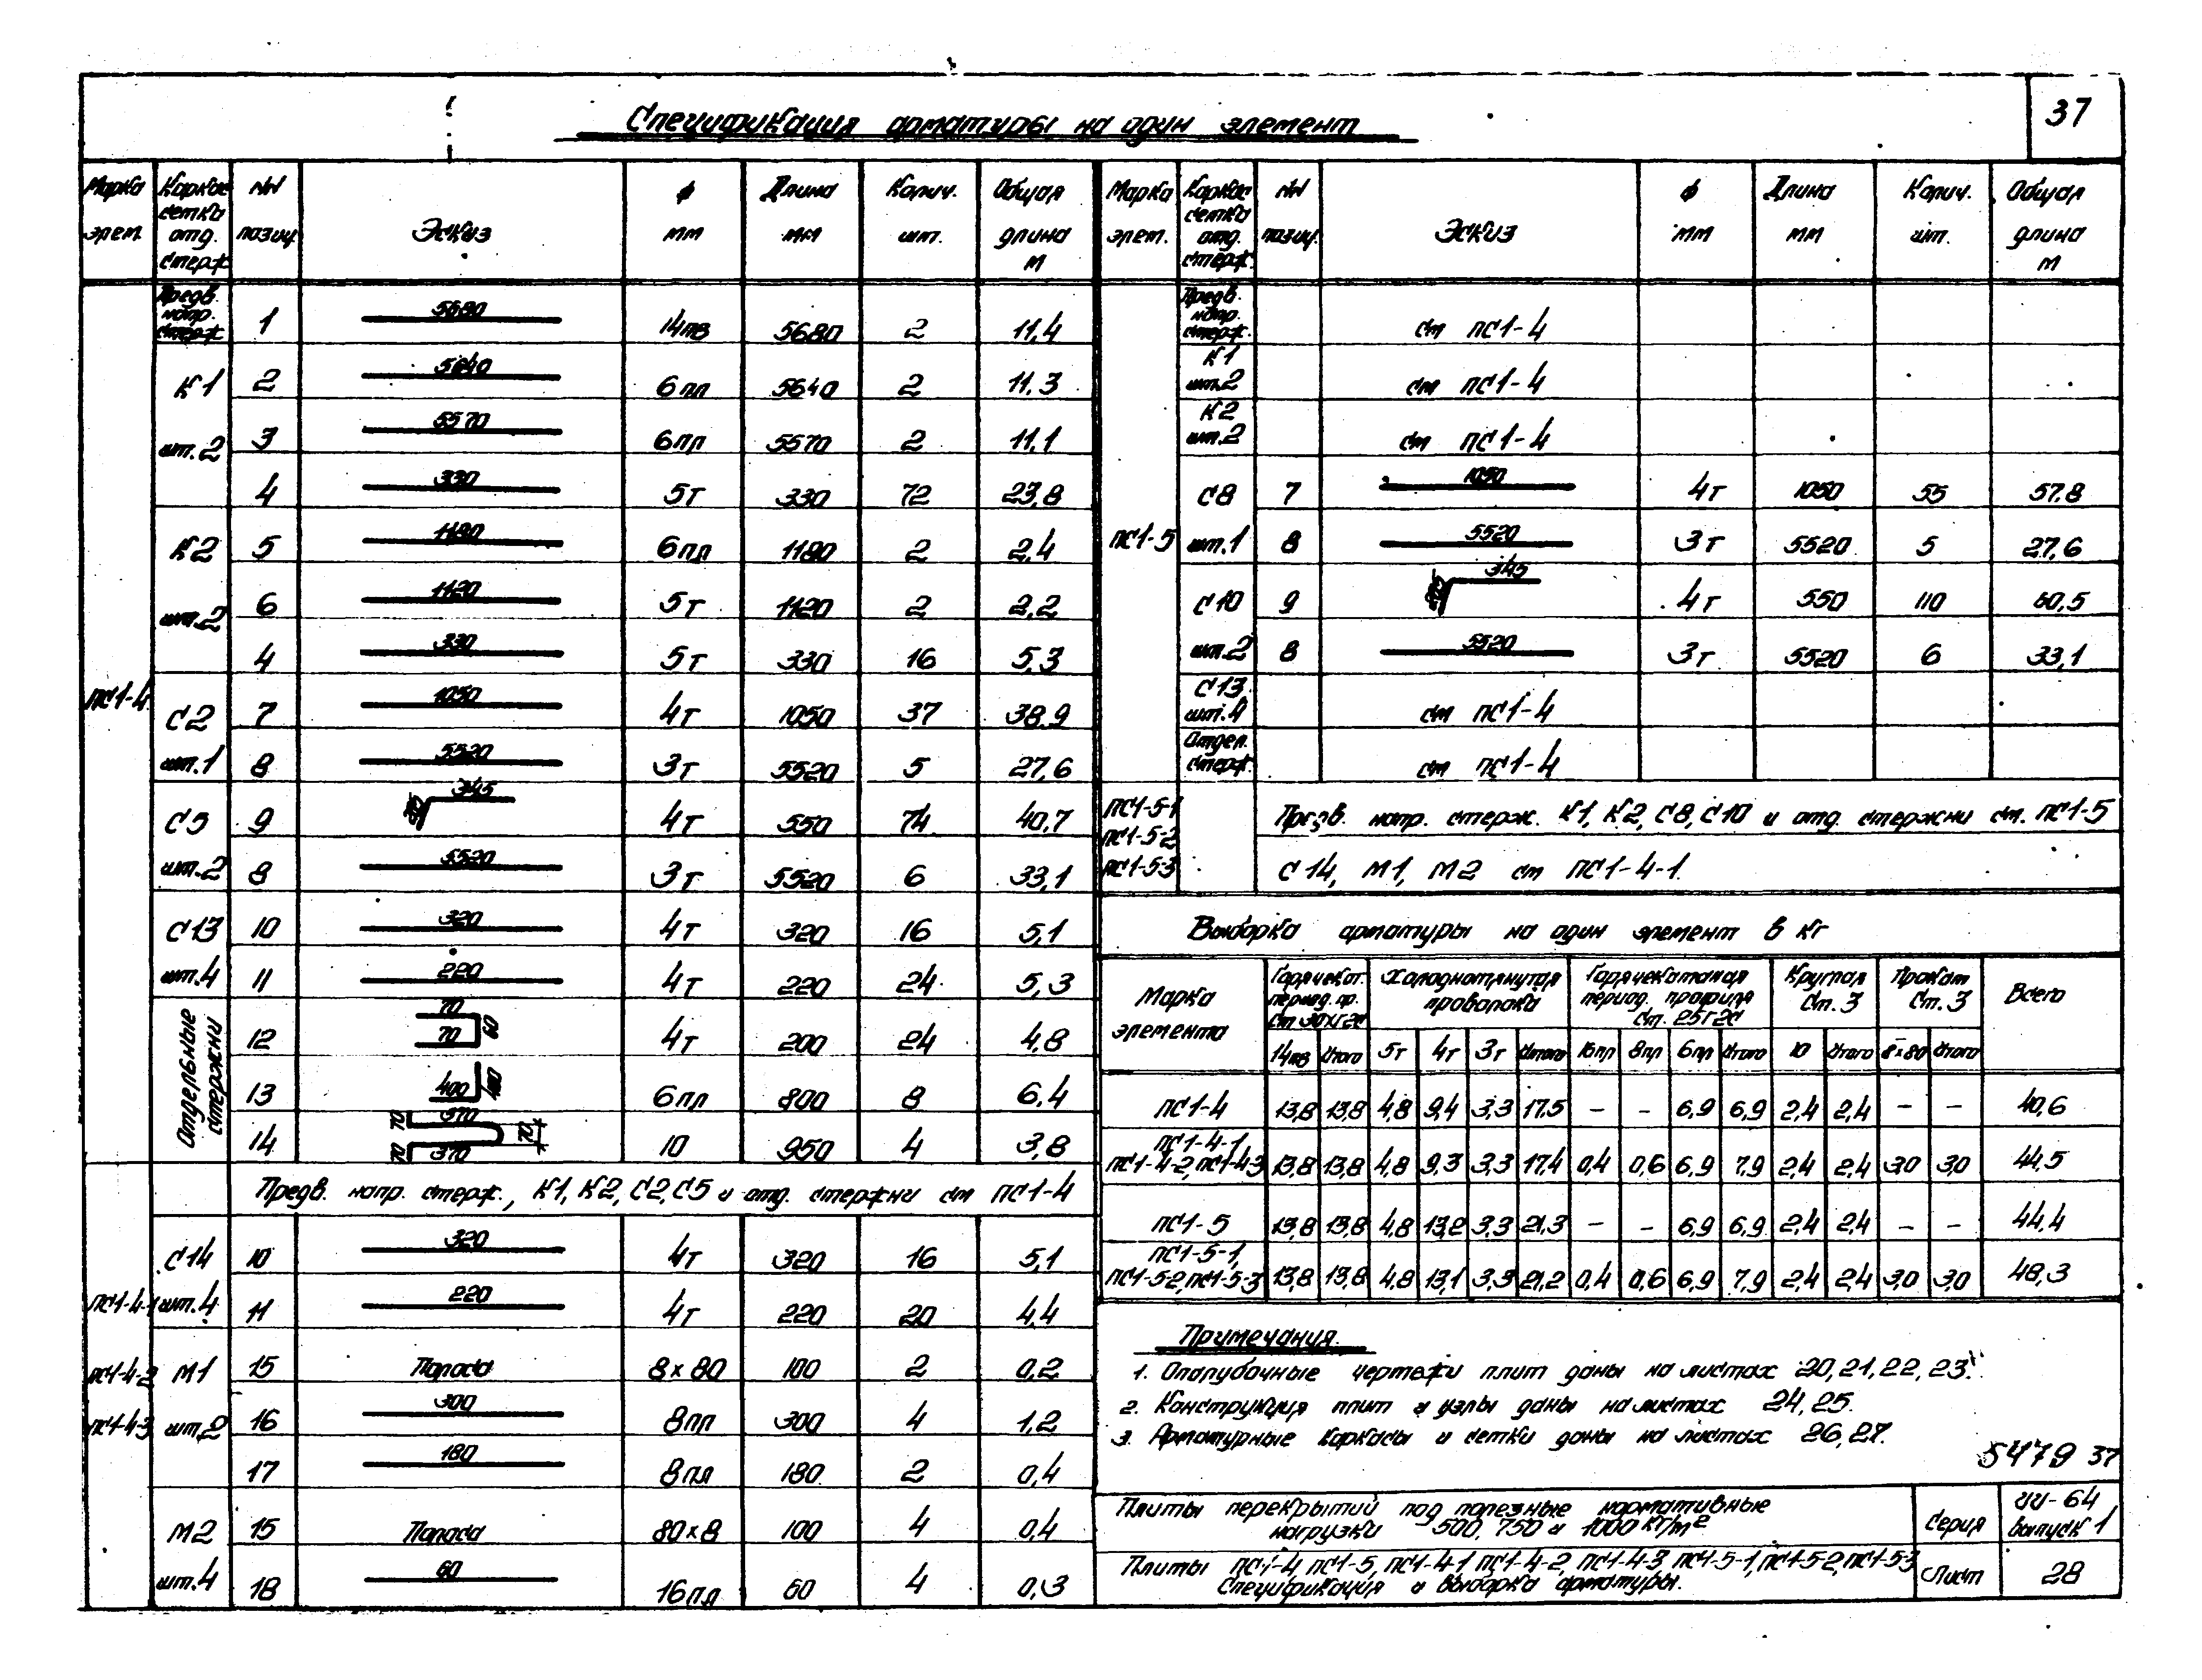 37
Спецификация арматуры на один элемент
Марка элем. Каркас сетка отд. стерж. NN позиц. Эскиз ф мм Длина мм Колич. шт. Общая длина м
ПС1-4
Предв. напр. стерж. 1 5680 14пв 5680 2 11,4
К1 шт.2 2 5640 6пл 5640 2 11,3
3 5570 6пл 5570 2 11,1
4 330 5т 330 72 23,8
К2 шт.2 5 1180 6пл 1180 2 2,4
6 1120 5т 1120 2 2,2
4 330 5т 330 16 5,3
С2 шт.1 7 1050 4т 1050 37 38,9
8 5520 3т 5520 5 27,6
С5 шт.2 9 345 4т 550 74 40,7
8 5520 3т 5520 6 33,1
С13 шт.4 10 320 4т 320 16 5,1
11 220 4т 220 24 5,3
Отдельные стержни 12 70 70 60 4т 200 24 4,8
13 400 400 6пл 800 8 6,4
14 70 370 70 370 70 10 950 4 3,8
Предв. напр. стерж., К1, К2, С2, С5 и отд. стержни см ПС1-4
ПС1-4-1 ПС1-4-2 ПС1-4-3
С14 шт.4 10 320 4т 320 16 5,1
11 220 4т 220 20 4,4
М1 шт.2 15 Полоса 8×80 100 2 0,2
16 300 8пл 300 4 1,2
17 180 8пл 180 2 0,4
М2 шт.4 15 Полоса 80×8 100 4 0,4
18 60 16пл 60 4 0,3
Марка элем. Каркас сетка отд. стерж. NN позиц. Эскиз ф мм Длина мм Колич. шт. Общая длина м
ПС1-5
Предв. напр. стерж. см ПС1-4
К1 шт.2 см ПС1-4
К2 шт.2 см ПС1-4
С8 шт.1 7 1050 4т 1050 55 57,8
8 5520 3т 5520 5 27,6
С10 шт.2 9 345 4т 550 110 60,5
8 5520 3т 5520 6 33,1
С13 шт.4 см ПС1-4
Отдел. стерж. см ПС1-4
ПС1-5-1 ПС1-5-2 ПС1-5-3
Предв. напр. стерж. К1, К2, С8, С10 и отд. стержни см. ПС1-5
С14, М1, М2 см ПС1-4-1
Выборка арматуры на один элемент в кг
Марка элемента Горячекат. период. пр. Ст 30хг2с Холоднотянутая проволока Горячекатаная период. профиля Ст. 25г2с Круглая Ст. 3 Прокат Ст. 3 Всего
14пв Итого 5т 4т 3т Итого 16пл 8пл 6пл Итого 10 Итого 8×80 Итого
ПС1-4 13,8 13,8 4,8 9,4 3,3 17,5 – – 6,9 6,9 2,4 2,4 – – 40,6
ПС1-4-1, ПС1-4-2, ПС1-4-3 13,8 13,8 4,8 9,3 3,3 17,4 0,4 0,6 6,9 7,9 2,4 2,4 3,0 3,0 44,5
ПС1-5 13,8 13,8 4,8 13,2 3,3 21,3 – – 6,9 6,9 2,4 2,4 – – 44,4
ПС1-5-1, ПС1-5-2, ПС1-5-3 13,8 13,8 4,8 13,1 3,3 21,2 0,4 0,6 6,9 7,9 2,4 2,4 3,0 3,0 48,3
Примечания.
1. Опалубочные чертежи плит даны на листах 20, 21, 22, 23.
2. Конструкция плит и узлы даны на листах 24, 25.
3. Арматурные каркасы и сетки даны на листах 26, 27.
5479 37
Плиты перекрытий под полезные нормативные
нагрузки 500, 750 и 1000 кг/м²
Серия ИИ-64 выпуск 1
Плиты ПС1-4, ПС1-5, ПС1-4-1, ПС1-4-2, ПС1-4-3, ПС1-5-1, ПС1-5-2, ПС1-5-3
Спецификация и выборка арматуры.
Лист 28